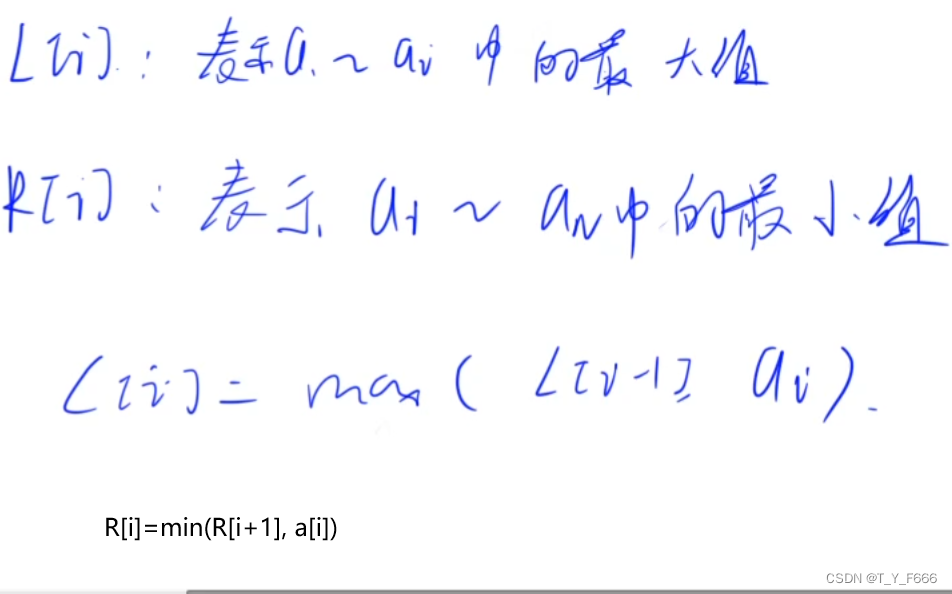 L[i]: 表示a₁~aᵢ中的最大值
R[i]: 表示aᵢ~aₙ中的最小值
L[i] = max( L[i-1] aᵢ).
R[i]=min(R[i+1], a[i])
CSDN @T_Y_F666